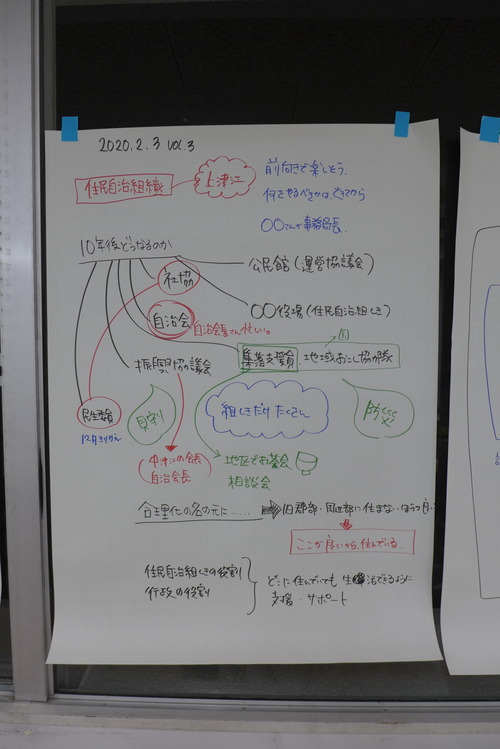 2020.2.3 vol.3
住民自治組織
上津江
前向きで楽しそう。
何をやるべきかは、できてから
〇〇さんが事務局長。
10年後どうなるのか
社協
公民館(運営協議会)
自治会
〇〇役場(住民自治組しき)
自治会長さん忙しい。
国
集落支援員
地域おこし協力隊
振興協議会
民生委員
12月きりかえ
見守り
組しきだけたくさん
防災
中津江の会長
自治会長
地区でお茶会
相談会
合理化の名の元に……
旧郡部・周辺部に住まないほうが良い
ここが良いから、住んでいる。
住民自治組しきの役割
行政の役割
どこに住んでいても生活できるように
支援・サポート